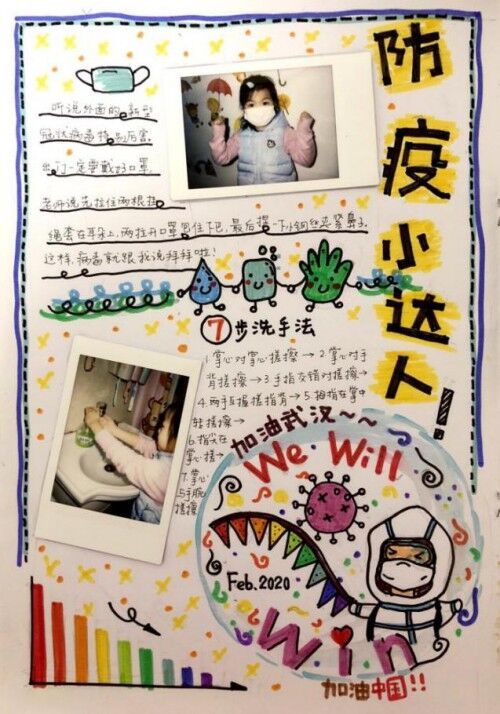 防疫小达人!
听说外面的新型
冠状病毒特别厉害
出门一定要戴好口罩
老师说先拉住两根挂
绳套在耳朵上,两拉开口罩包住下巴,最后摁一下小钢丝夹紧鼻子
这样,病毒就跟我说拜拜啦!
7步洗手法
1.掌心对掌心搓擦→2.掌心对手
背搓擦→3手指交错对搓擦→
4.两手互握搓指背→5.拇指在掌中
转搓擦→
6.指尖在
掌心搓→
7.掌心
与手腕
搓擦
加油武汉~~
We Will
Feb.2020
Win
加油中国!!